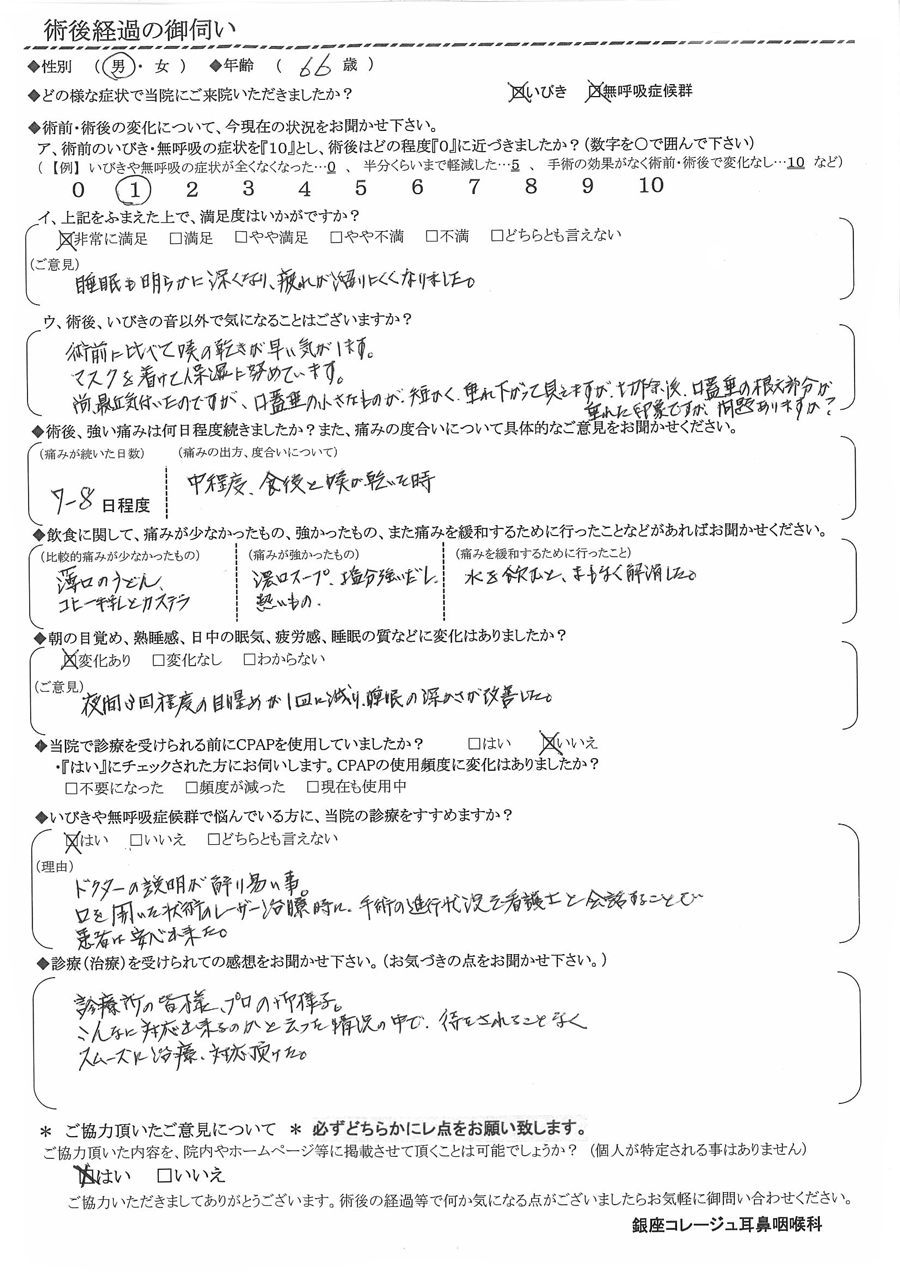 術後経過の御伺い
◆性別 ( 男 ・ 女 ) ◆年齢 ( 66 歳 )
◆どの様な症状で当院にご来院いただきましたか? ☒いびき ☒無呼吸症候群
◆術前・術後の変化について、今現在の状況をお聞かせ下さい。
ア、術前のいびき・無呼吸の症状を『10』とし、術後はどの程度『0』に近づきましたか?(数字を○で囲んで下さい)
(【例】いびきや無呼吸の症状が全くなくなった…0 、 半分くらいまで軽減した…5 、 手術の効果がなく術前・術後で変化なし…10 など)
0 1 2 3 4 5 6 7 8 9 10
イ、上記をふまえた上で、満足度はいかがですか?
☒非常に満足 □満足 □やや満足 □やや不満 □不満 □どちらとも言えない
(ご意見)
睡眠も明らかに深くなり、疲れが溜りにくくなりました。
ウ、術後、いびきの音以外で気になることはございますか?
術前に比べて喉の乾きが早い気がします。
マスクを着けて保湿に努めています。
尚、最近気付いたのですが、口蓋垂の小さなものが、短かく、垂れ下がって見えますが、切除後、口蓋垂の根元部分が
垂れた印象ですが、問題ありますか?
◆術後、強い痛みは何日程度続きましたか?また、痛みの度合いについて具体的なご意見をお聞かせください。
(痛みが続いた日数) (痛みの出方、度合いについて)
7-8 日程度 中程度、食後と喉が乾いた時
◆飲食に関して、痛みが少なかったもの、強かったもの、また痛みを緩和するために行ったことなどがあればお聞かせください。
(比較的痛みが少なかったもの) (痛みが強かったもの) (痛みを緩和するために行ったこと)
薄口のうどん、 濃口スープ、塩分強いだし 水を飲むと、まもなく解消した。
コーヒー牛乳とカステラ 熱いもの。
◆朝の目覚め、熟睡感、日中の眠気、疲労感、睡眠の質などに変化はありましたか?
☒変化あり □変化なし □わからない
(ご意見)
夜間3回程度の目覚めが1回に減り、睡眠の深かさが改善した。
◆当院で診療を受けられる前にCPAPを使用していましたか? □はい ☒いいえ
・『はい』にチェックされた方にお伺いします。CPAPの使用頻度に変化はありましたか?
□不要になった □頻度が減った □現在も使用中
◆いびきや無呼吸症候群で悩んでいる方に、当院の診療をすすめますか?
☒はい □いいえ □どちらとも言えない
(理由)
ドクターの説明が解り易い事。
口を開いた状術のレーザー治療時に、手術の進行状況を看護士と会話することで
患者は安心出来た。
◆診療(治療)を受けられての感想をお聞かせ下さい。(お気づきの点をお聞かせ下さい。)
診療所の皆様、プロの御様子。
こんなに対応出来るのかと云った情況の中で、待たされることなく
スムーズに治療、対応頂けた。
＊ ご協力頂いたご意見について ＊ 必ずどちらかにレ点をお願い致します。
ご協力頂いた内容を、院内やホームページ等に掲載させて頂くことは可能でしょうか? (個人が特定される事はありません)
☒はい □いいえ
ご協力いただきましてありがとうございます。術後の経過等で何か気になる点がございましたらお気軽に御問い合わせください。
銀座コレージュ耳鼻咽喉科